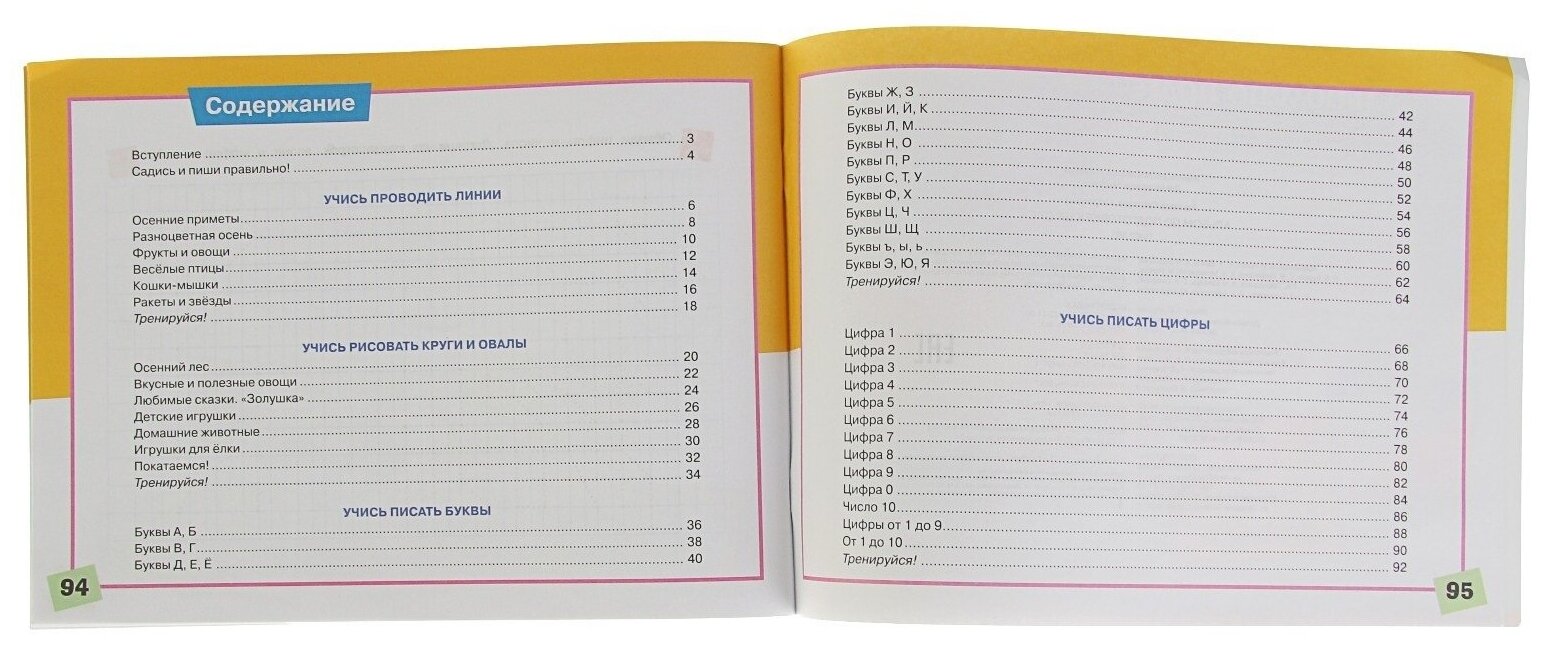 Содержание
Вступление ........ 3
Садись и пиши правильно! ........ 4
УЧИСЬ ПРОВОДИТЬ ЛИНИИ
Осенние приметы ........ 6
Разноцветная осень ........ 8
Фрукты и овощи ........ 10
Весёлые птицы ........ 12
Кошки-мышки ........ 14
Ракеты и звёзды ........ 16
Тренируйся! ........ 18
УЧИСЬ РИСОВАТЬ КРУГИ И ОВАЛЫ
Осенний лес ........ 20
Вкусные и полезные овощи ........ 22
Любимые сказки. «Золушка» ........ 24
Детские игрушки ........ 26
Домашние животные ........ 28
Игрушки для ёлки ........ 30
Покатаемся! ........ 32
Тренируйся! ........ 34
УЧИСЬ ПИСАТЬ БУКВЫ
Буквы А, Б ........ 36
Буквы В, Г ........ 38
Буквы Д, Е, Ё ........ 40
94
Буквы Ж, З ........ 42
Буквы И, Й, К ........ 44
Буквы Л, М ........ 46
Буквы Н, О ........ 48
Буквы П, Р ........ 50
Буквы С, Т, У ........ 52
Буквы Ф, Х ........ 54
Буквы Ц, Ч ........ 56
Буквы Ш, Щ ........ 58
Буквы ъ, ы, ь ........ 60
Буквы Э, Ю, Я ........ 62
Тренируйся! ........ 64
УЧИСЬ ПИСАТЬ ЦИФРЫ
Цифра 1 ........ 66
Цифра 2 ........ 68
Цифра 3 ........ 70
Цифра 4 ........ 72
Цифра 5 ........ 74
Цифра 6 ........ 76
Цифра 7 ........ 78
Цифра 8 ........ 80
Цифра 9 ........ 82
Цифра 0 ........ 84
Число 10 ........ 86
Цифры от 1 до 9 ........ 88
От 1 до 10 ........ 90
Тренируйся! ........ 92
95